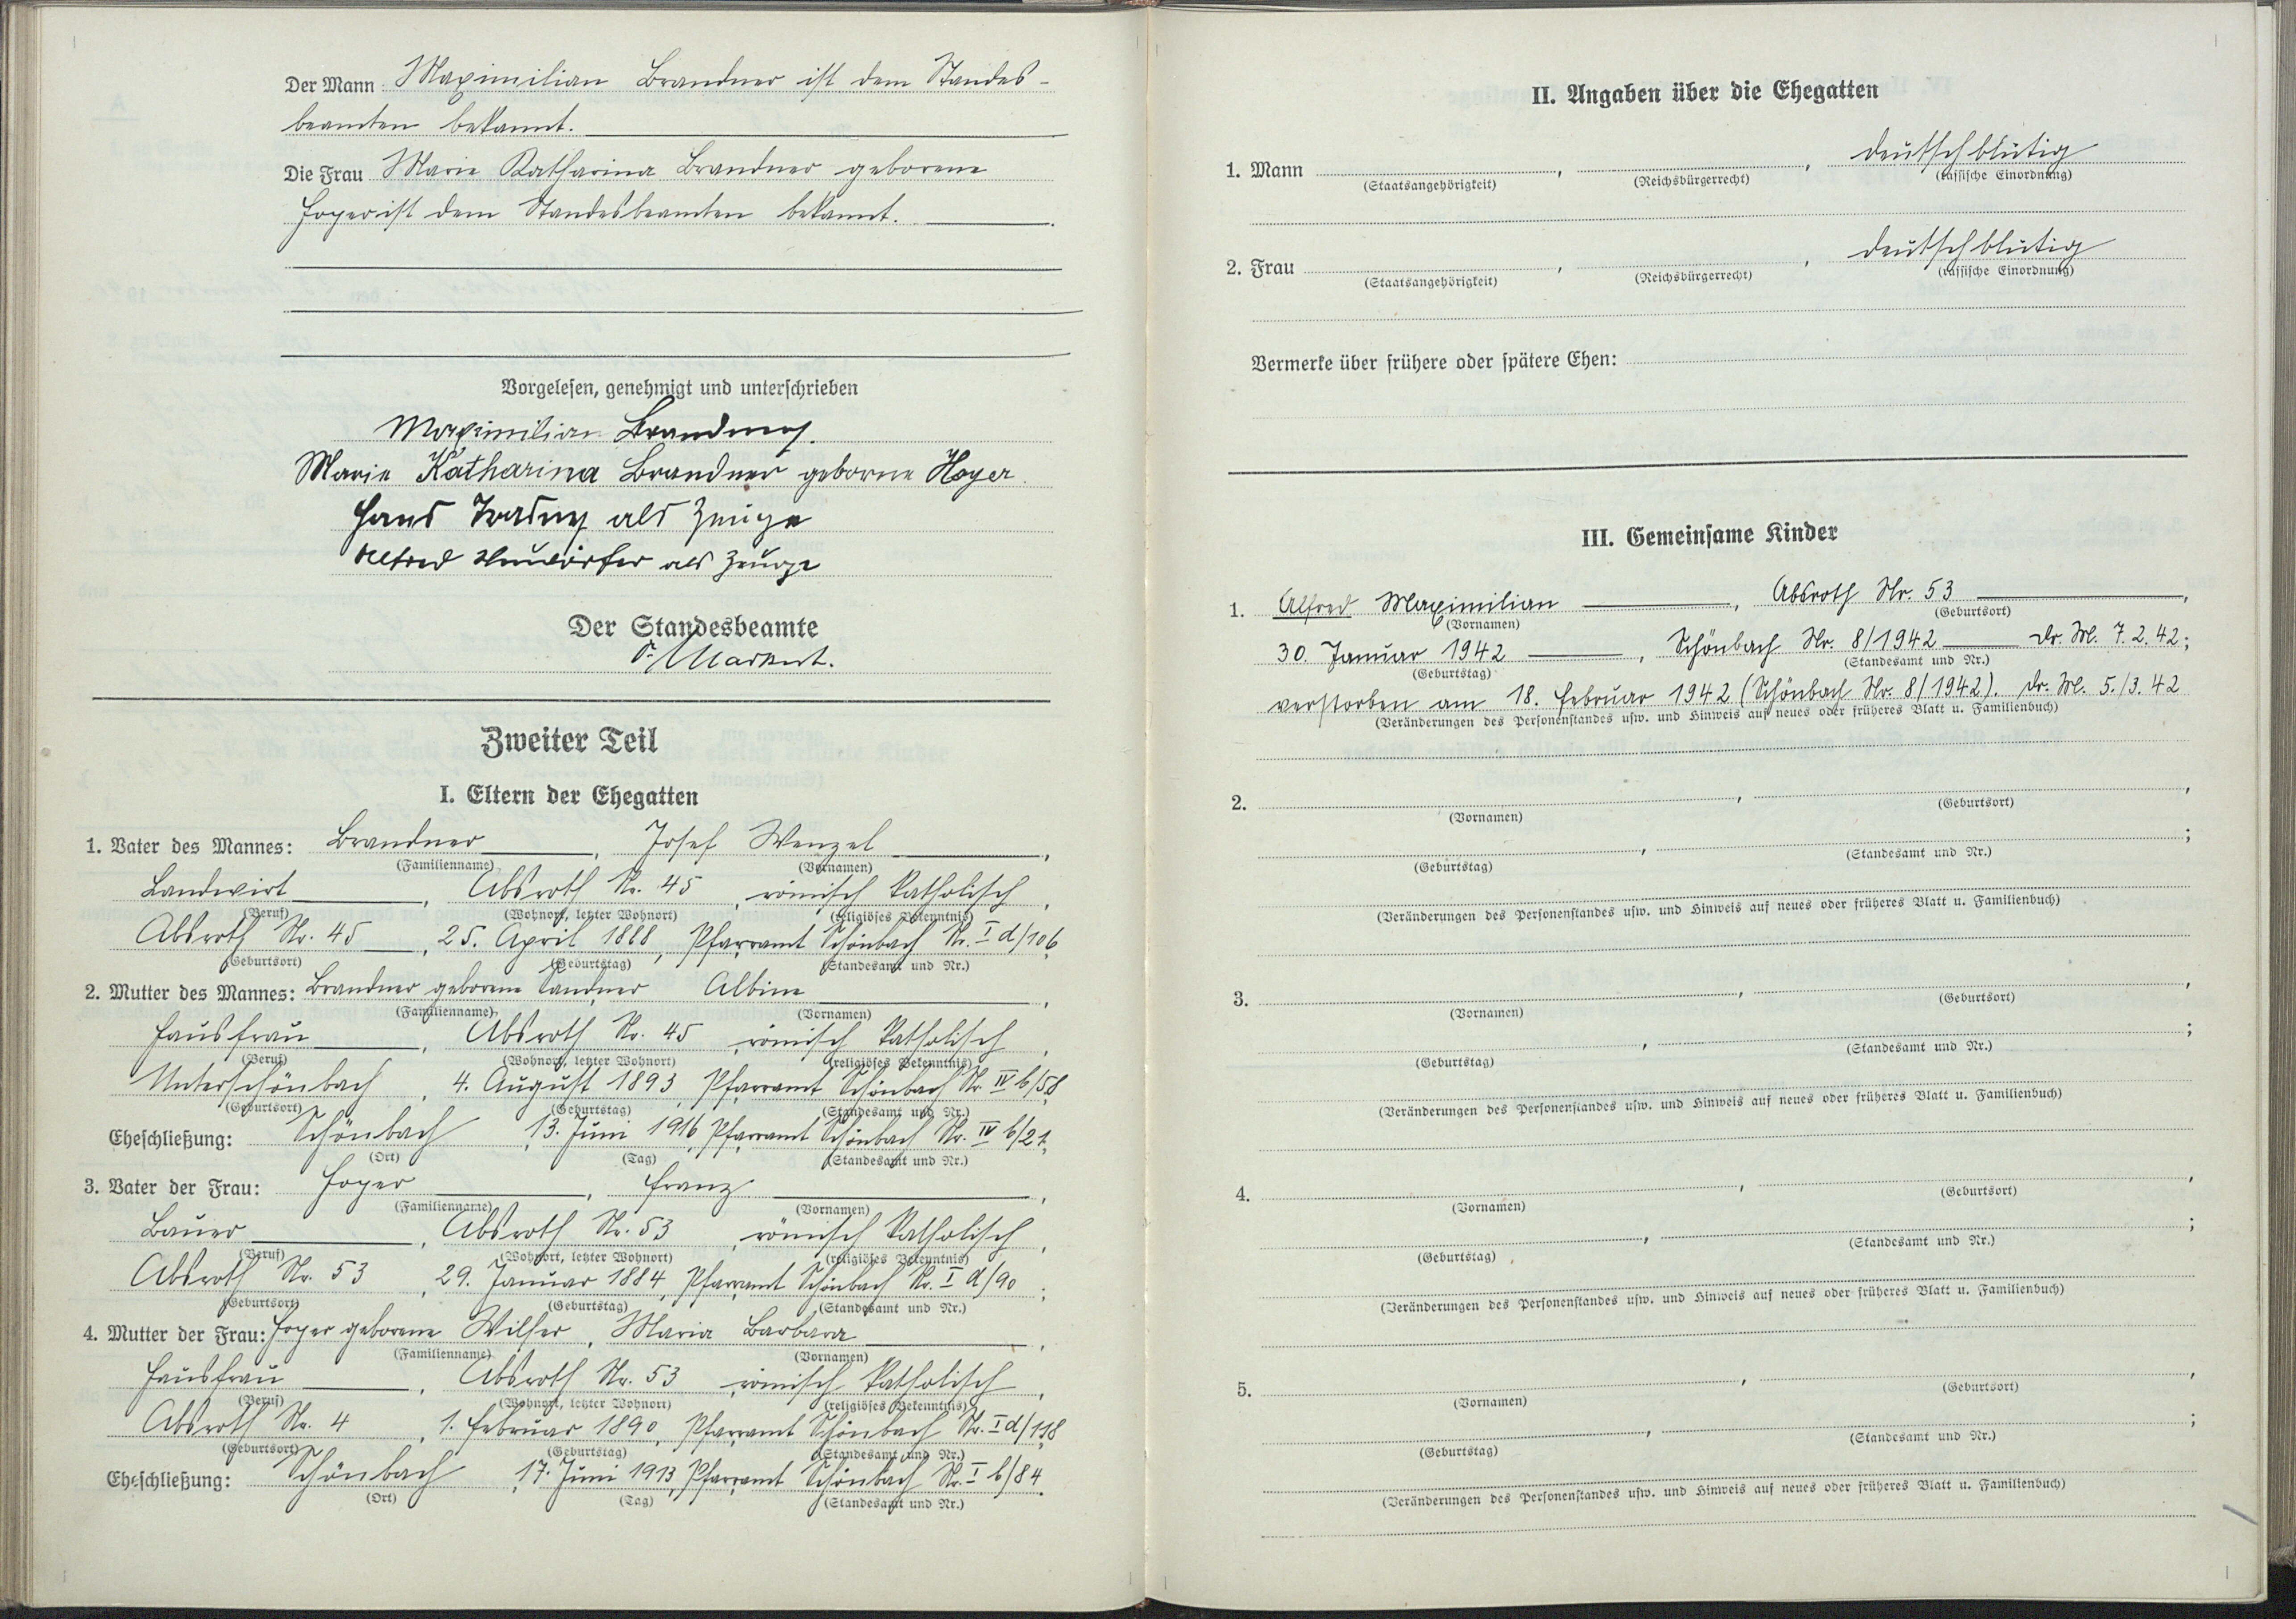 Der Mann Maximilian Brandner ist dem Standes-
beamten bekannt.
Die Frau Marie Katharina Brandner geborene
Hoyer ist dem Standesbeamten bekannt.
Vorgelesen, genehmigt und unterschrieben
Maximilian Brandner.
Marie Katharina Brandner geborne Hoyer.
Hans als Zeuge
Alfred als Zeuge
Der Standesbeamte
Markert.
Zweiter Teil
I. Eltern der Ehegatten
1. Vater des Mannes: Brandner, Josef Wenzel,
(Familienname) (Vornamen)
Landwirt, Absroth Nr. 45, römisch katholisch,
(Beruf) (Wohnort, letzter Wohnort) (religiöses Bekenntnis)
Absroth Nr. 45, 25. April 1888, Pfarramt Schönbach Nr. I d/106;
(Geburtsort) (Geburtstag) (Standesamt und Nr.)
2. Mutter des Mannes: Brandner geborene Sandner Albine,
(Familienname) (Vornamen)
Hausfrau, Absroth Nr. 45, römisch katholisch,
(Beruf) (Wohnort, letzter Wohnort) (religiöses Bekenntnis)
Unterschönbach, 4. August 1893, Pfarramt Schönbach Nr. IV b/58
(Geburtsort) (Geburtstag) (Standesamt und Nr.)
Eheschließung: Schönbach, 13. Juni 1916, Pfarramt Schönbach Nr. IV b/21.
(Ort) (Tag) (Standesamt und Nr.)
3. Vater der Frau: Hoyer, Franz,
(Familienname) (Vornamen)
Bauer, Absroth Nr. 53, römisch katholisch,
(Beruf) (Wohnort, letzter Wohnort) (religiöses Bekenntnis)
Absroth Nr. 53, 29. Januar 1884, Pfarramt Schönbach Nr. I d/90;
(Geburtsort) (Geburtstag) (Standesamt und Nr.)
4. Mutter der Frau: Hoyer geborene Wilfer, Maria Barbara,
(Familienname) (Vornamen)
Hausfrau, Absroth Nr. 53, römisch katholisch,
(Beruf) (Wohnort, letzter Wohnort) (religiöses Bekenntnis)
Absroth Nr. 4, 1. Februar 1890, Pfarramt Schönbach Nr. I d/118
(Geburtsort) (Geburtstag) (Standesamt und Nr.)
Eheschließung: Schönbach, 17. Juni 1913, Pfarramt Schönbach Nr. I b/84.
(Ort) (Tag) (Standesamt und Nr.)
II. Angaben über die Ehegatten
1. Mann , , deutschblütig
(Staatsangehörigkeit) (Reichsbürgerrecht) (rassische Einordnung)
2. Frau , , deutschblütig
(Staatsangehörigkeit) (Reichsbürgerrecht) (rassische Einordnung)
Vermerke über frühere oder spätere Ehen:
III. Gemeinsame Kinder
1. Alfred Maximilian, Absroth Nr. 53,
(Vornamen) (Geburtsort)
30. Januar 1942, Schönbach Nr. 8/1942 Dr. M. 7.2.42;
(Geburtstag) (Standesamt und Nr.)
verstorben am 18. Februar 1942 (Schönbach Nr. 8/1942). Dr. M. 5./3.42
(Veränderungen des Personenstandes usw. und Hinweis auf neues oder früheres Blatt u. Familienbuch)
2. , ,
(Vornamen) (Geburtsort)
, ;
(Geburtstag) (Standesamt und Nr.)
(Veränderungen des Personenstandes usw. und Hinweis auf neues oder früheres Blatt u. Familienbuch)
3. , ,
(Vornamen) (Geburtsort)
, ;
(Geburtstag) (Standesamt und Nr.)
(Veränderungen des Personenstandes usw. und Hinweis auf neues oder früheres Blatt u. Familienbuch)
4. , ,
(Vornamen) (Geburtsort)
, ;
(Geburtstag) (Standesamt und Nr.)
(Veränderungen des Personenstandes usw. und Hinweis auf neues oder früheres Blatt u. Familienbuch)
5. , ,
(Vornamen) (Geburtsort)
, ;
(Geburtstag) (Standesamt und Nr.)
(Veränderungen des Personenstandes usw. und Hinweis auf neues oder früheres Blatt u. Familienbuch)